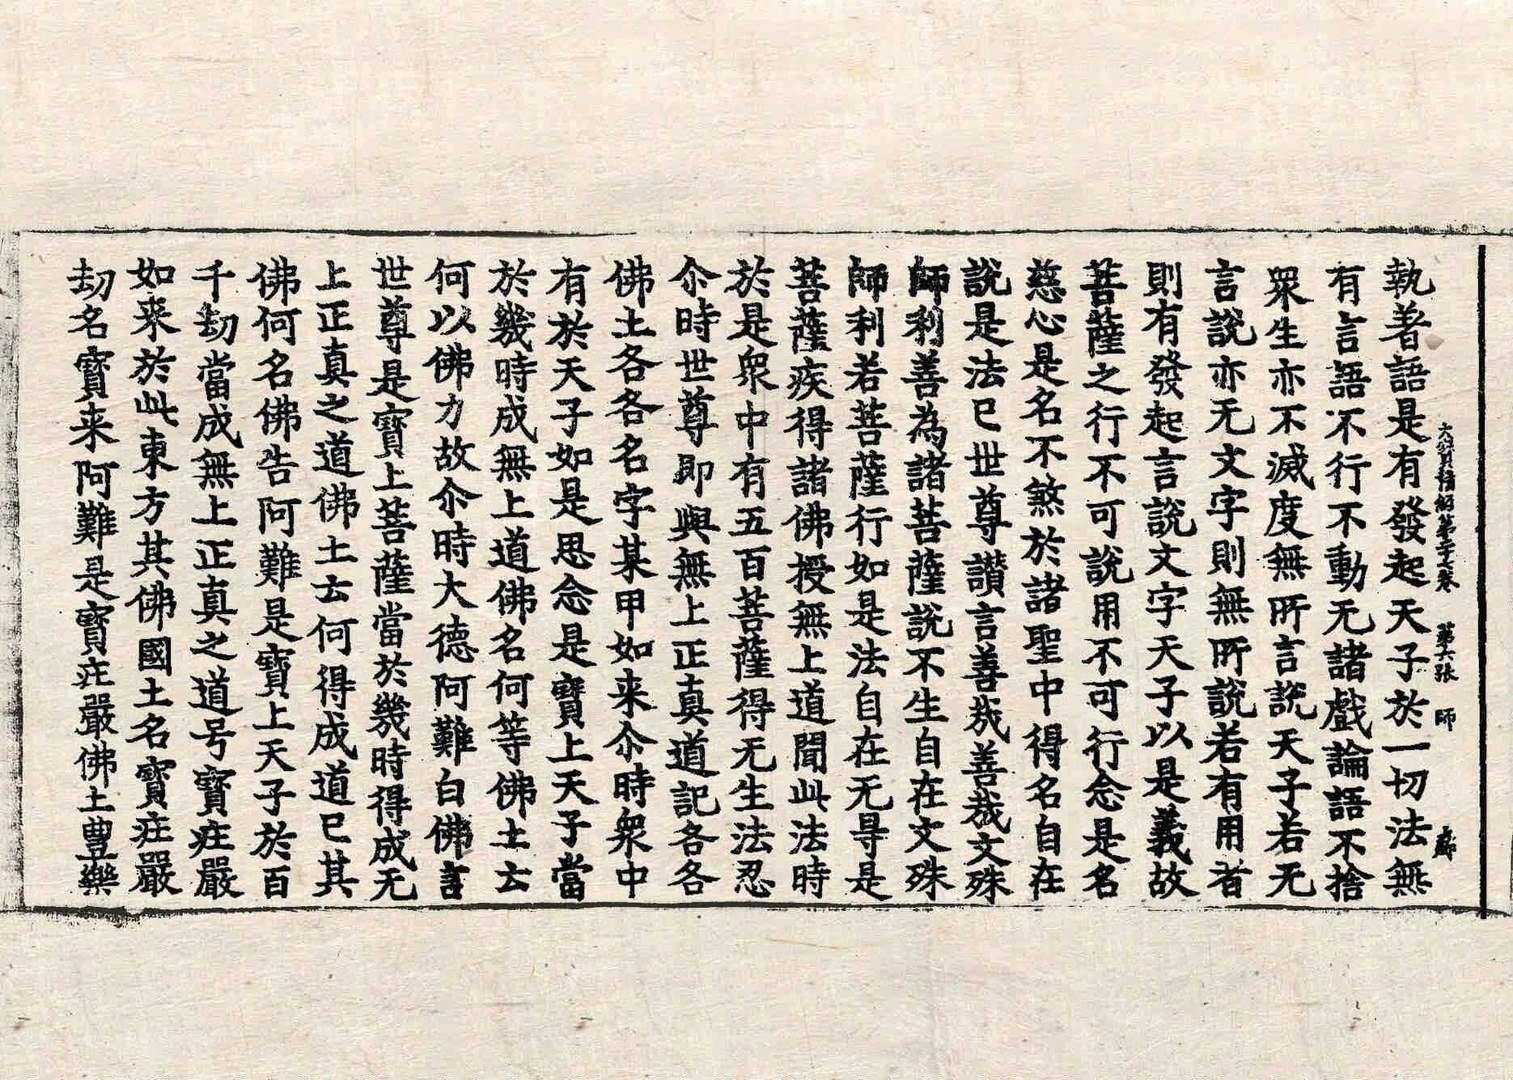 執著語是有發起天子於一切法無
有言語不行不動无諸戲論語不捨
眾生亦不滅度無所言說天子若无
言說亦无文字則無所說若有用者
則有發起言說文字天子以是義故
菩薩之行不可說用不可行念是名
慈心是名不煞於諸聖中得名自在
說是法已世尊讚言善哉善哉文殊
師利善為諸菩薩說不生自在文殊
師利若菩薩行如是法自在无㝵是
菩薩疾得諸佛授無上道聞此法時
於是眾中有五百菩薩得无生法忍
尒時世尊即與無上正真道記各各
佛土各各名字某甲如来尒時眾中
有於天子如是思念是寶上天子當
於幾時成無上道佛名何等佛土云
何以佛力故尒時大德阿難白佛言
世尊是寶上菩薩當於幾時得成无
上正真之道佛土云何得成道已其
佛何名佛告阿難是寶上天子於百
千劫當成無上正真之道号寶疘嚴
如来於此東方其佛國土名寶疘嚴
劫名寶来阿難是寶疘嚴佛土豊樂
第六張 師